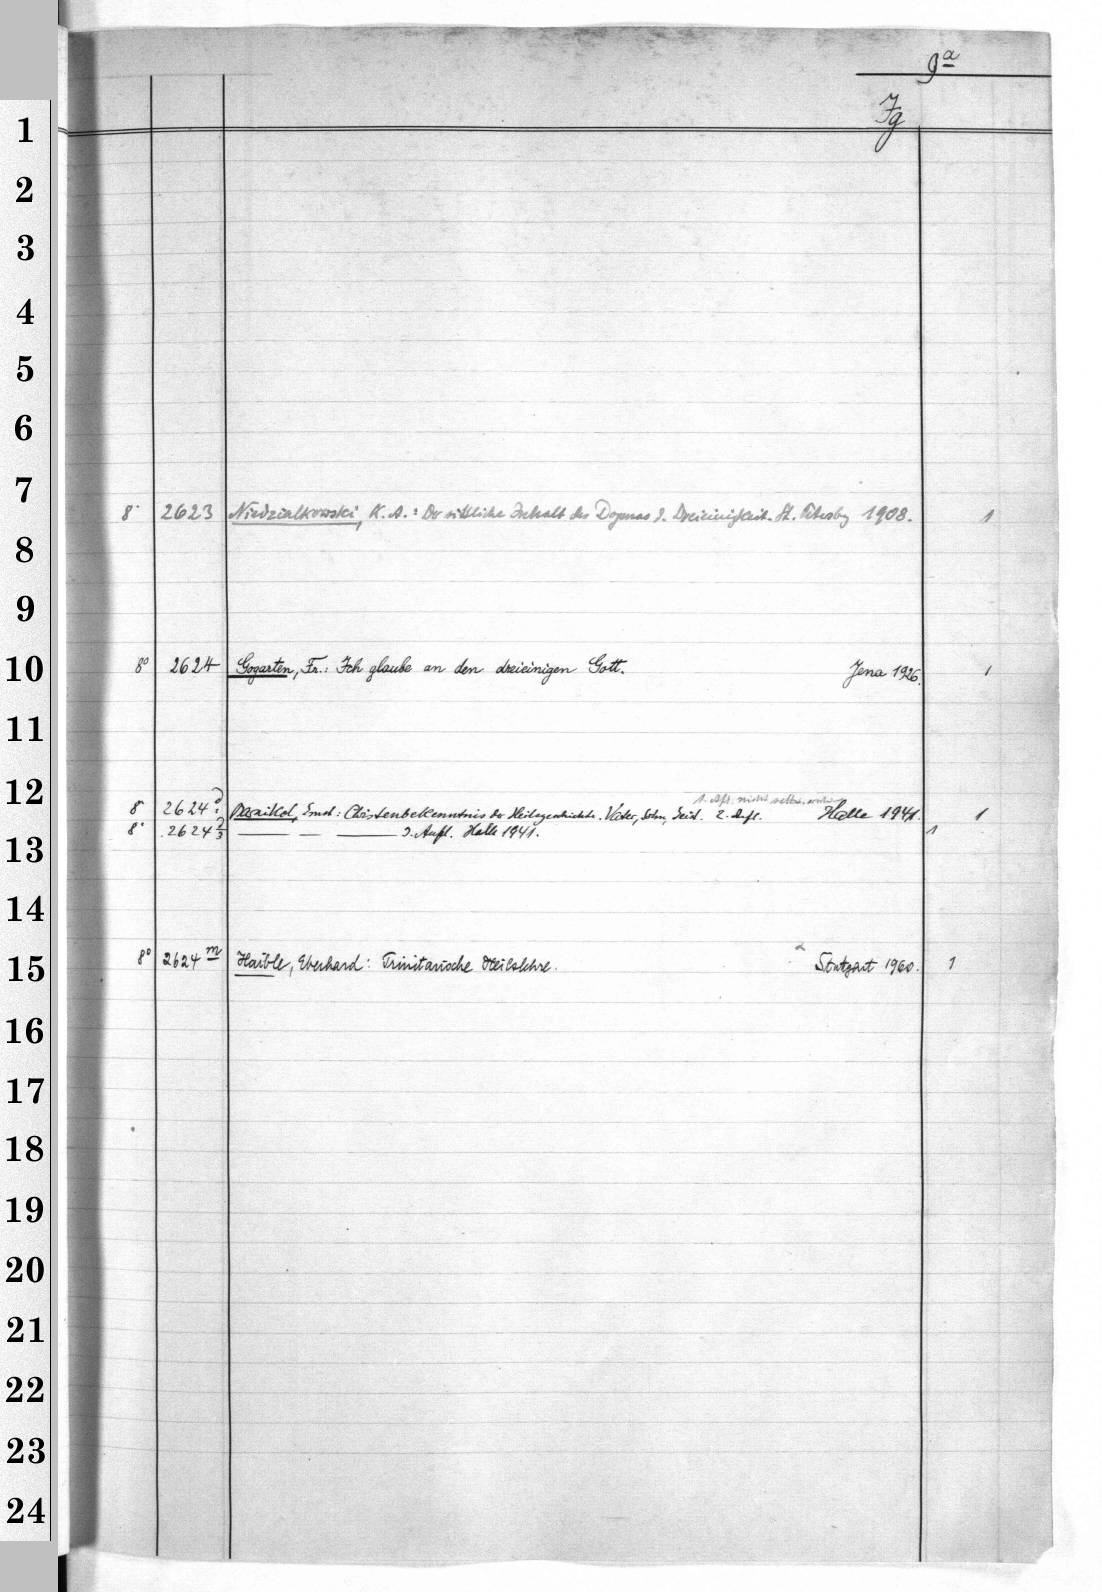 9a
Fg
1
2
3
4
5
6
7
8° 2623 Niedzialkowski, K. A.: Der sittliche Inhalt des Dogmas d. Dreieinigkeit. St. Petersbg 1908. 1
8
9
10
8° 2624 Gogarten, Fr.: Ich glaube an den dreieinigen Gott. Jena 1926. 1
11
12
1. Aufl. nicht
8° 2624 Barnikol, Ernst: Christenbekenntnis der Heilsgeschichte. Vater, Sohn, Geist. 2. Aufl. Halle 1941. 1
8° 2624 3. Aufl. Halle 1941. 1
13
14
8° 2624 m Haible, Eberhard: Trinitarische Heilslehre. Stuttgart 1960. 1
15
16
17
18
19
20
21
22
23
24